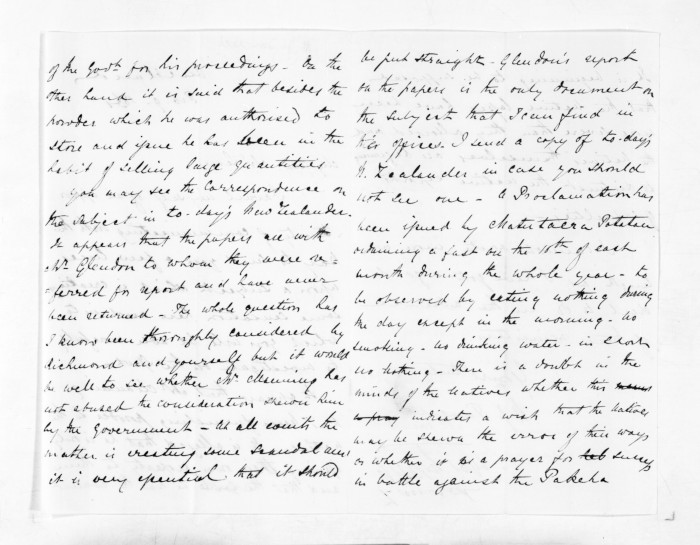 of the Govt. for his proceedings - On the
other hand it is said that besides the
powder which he was authorised to
store and issue he has been in the
habit of selling large quantities.
You may see the correspondence on
the subject in to-day's New Zealander.
It appears that the papers are with
Mr. Glendon to whom they were re-
-ferred for report and have never
been returned - The whole question has
I know been thoroughly considered by
Richmond and yourself but it would
be well to see whether Mr. Manning has
not abused the consideration shewn him
by the Government - At all events the
matter is creating some scandal and
it is very essential that it should
be put straight - Glendon's report
on the papers is the only document on
the subject that I can find in
the offices. I send a copy of to-day's
N. Zealander in case you should
not see one - A Proclamation has
been issued by Matutaera Potatau
ordaining a fast on the 10th of each
month during the whole year - to
be observed by eating nothing during
the day except in the morning - no
smoking - no drinking water - in short
no nothing - There is a doubt in the
minds of the Natives whether this means
to pray indicates a wish that the natives
may be shewn the error of their ways
or whether it is a prayer for success
in battle against the Pakeha